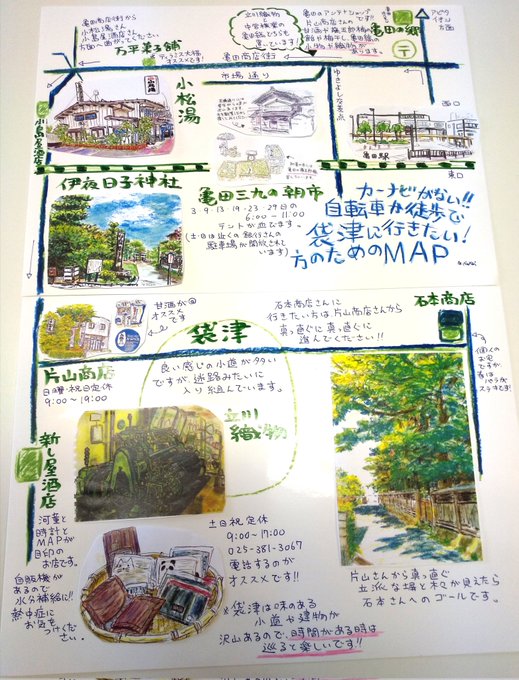 亀田商店街から
小松湯さん
小島屋酒店さん
方面へ曲がってください
万平菓子舗
オススメです!
立川織物
中営機業の
亀田縞とろうも
亀田のアンテナショップ
片山商店さんの
甘酒や
小物や織物が
あります。
亀田の郷
〒
アピタ
イオン
方面
亀田商店街
市場通り
小島屋酒店
小松湯
ゆきよしな差点
西口
亀田駅
東口
伊夜日子神社
亀田三九の朝市
3・9・13・19・23・29の日
6:00~11:00
テントが並びます。
(土・日は近くの銀行さんの
駐車場が開放されて
います)
カーナビがない!!
自転車か徒歩で
袋津に行きたい!
方のためのMAP
甘酒が
オススメ
です
石本商店さんに
行きたい方は片山商店さんから
真っ直ぐに真っ直ぐに
進んでください!!
石本商店
袋津
片山商店
日曜・祝日定休
9:00~19:00
良い感じの小道が多い
ですが、迷路みたいに
入り組んでいます。
個人の
お宅
ですが
バラが
ステキです!
立川
織物
新し屋酒店
河童と
時計と
MAPが
目印の
お店です。
自販機が
あるので
水分補給に!!
熱中症に
お気を
つけくだ
さい。
土日祝定休
9:00~17:00
025-381-3067
電話するのが
オススメです!!
※袋津は味のある
小道や建物が
沢山あるので、時間がある時は
巡ると楽しいです!!
片山さんから真っ直ぐ
立派な塀と木々が見えたら
石本さんへのゴールです。